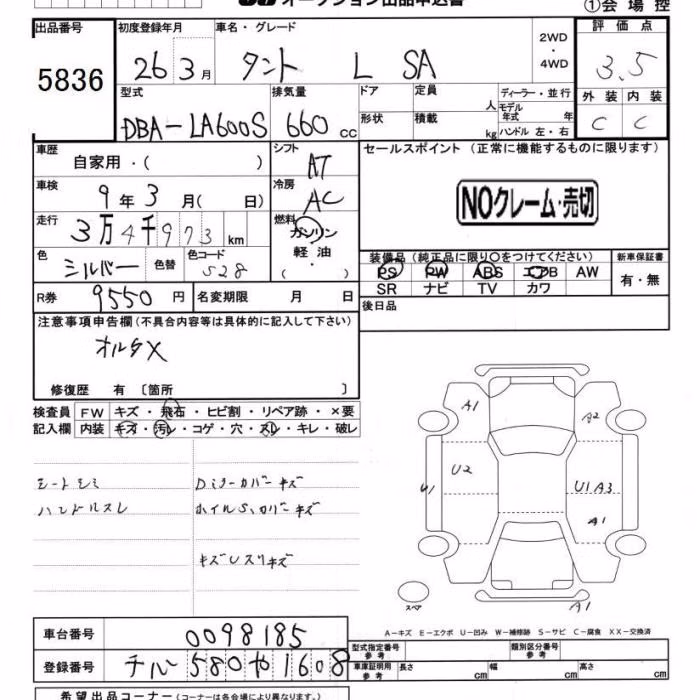 オークション出品申込書
①会場控
出品番号
5836
初度登録年月
26 3月
車名・グレード
タント L SA
2WD
・
4WD
評価点
3.5
型式
DBA-LA600S
排気量
660 cc
ドア
定員
人
形状
積載
kg
ディーラー・並行
モデル年式 年
ハンドル 左・右
外装 内装
C C
車歴
自家用・( )
シフト
AT
セールスポイント (正常に機能するものに限ります)
車検
9年3月( 日)
冷房
AC
NOクレーム・売切
走行
3万4千973 km
燃料
ガソリン
軽油
( ・ )
色
シルバー
色替
色コード
S28
装備品 (純正品に限り○をつけてください)
新車保証書
PS PW ABS エアB AW
有・無
SR ナビ TV カワ
R券
9550円
名変期限 月 日
後日品
注意事項申告欄 (不具合内容等は具体的に記入して下さい)
オルタX
修復歴 有 〔箇所 〕
検査員記入欄
FW キズ・飛石・ヒビ割・リペア跡・×要
内装 キズ・汚レ・コゲ・穴・スレ・キレ・破レ
シートシミ
ハンドルスレ
Dミラーカバーキズ
ホイルS、カバーキズ
キズUスリキズ
A1
A2
U2
U1
U1 A3
A1
スペア
A1
A-キズ E-エクボ U-凹み W-補修跡 S-サビ C-腐食 XX-交換済
車台番号
0098185
登録番号
チルー580や1608
型式指定番号
参考
類別区分番号
参考
車庫証明用
参考
長さ cm
幅 cm
高さ cm
希望出品コーナー (コーナーは各会場により異なります。)